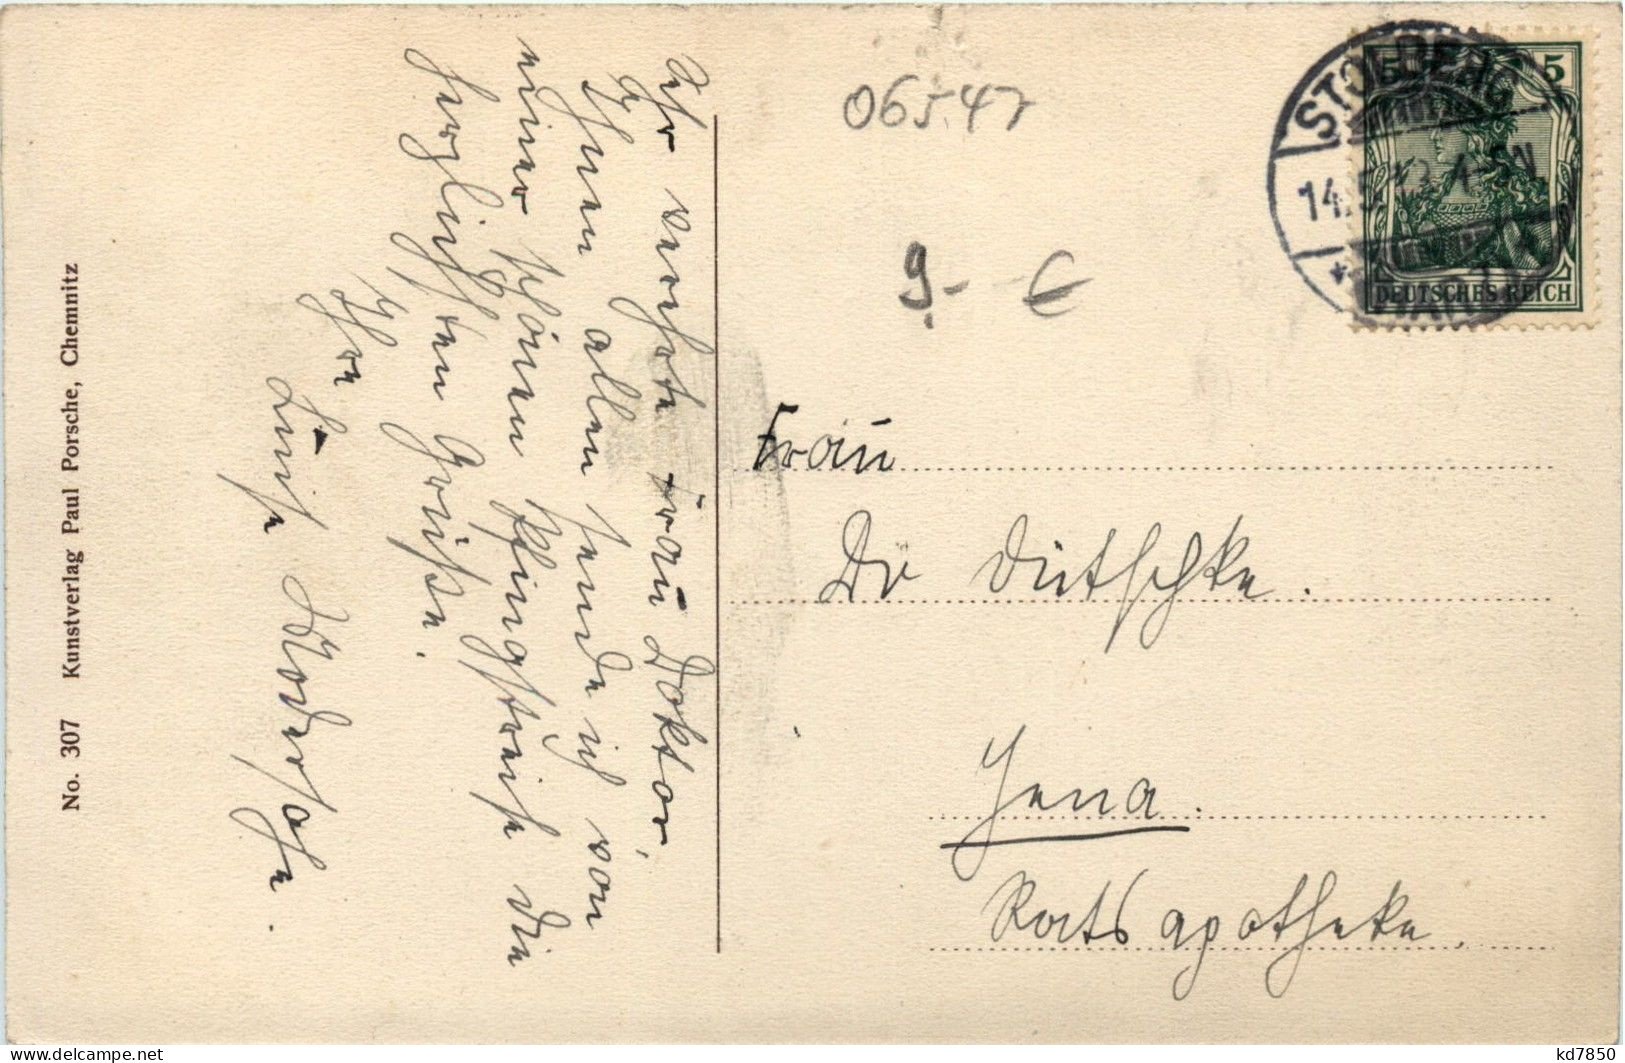 Sehr verehrte Frau Doktor,
Ihnen allen sende ich von
einer schönen Pfingstreise die
herzlichsten Grüße.
Ihre
Luise
No. 307 Kunstverlag Paul Porsche, Chemnitz
06547
9.- €
STOLBERG
14.5.12.4-5N.
5 5
DEUTSCHES REICH
Frau
Dr Dütschke.
Jena.
Ratsapotheke.
kd7850